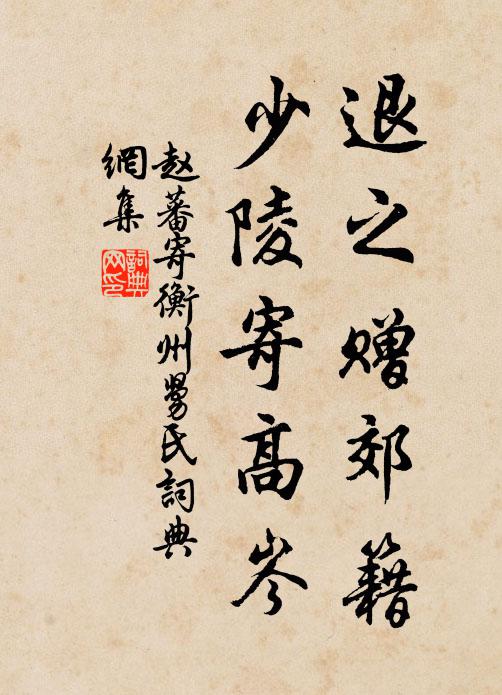 退之赠郊籍
少陵寄高岑
赵蕃寄衡州劳氏詞典
網集
詞典
网印